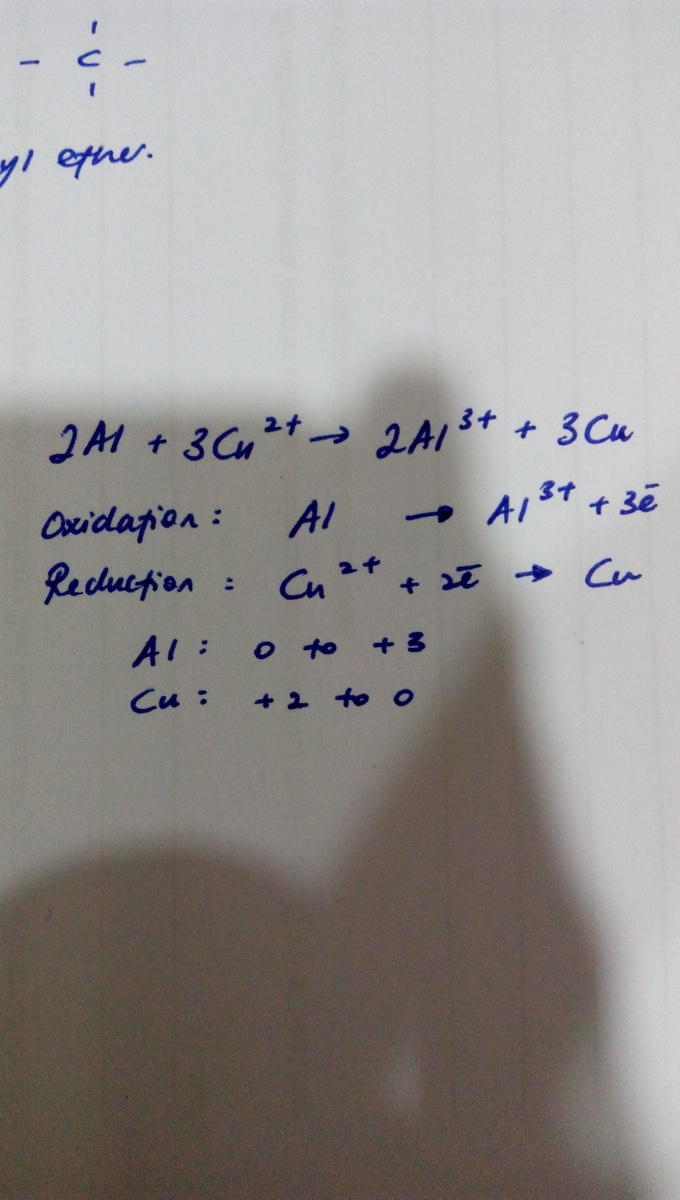 - C -
yl ether.
2Al + 3Cu²⁺ → 2Al³⁺ + 3Cu
Oxidation: Al → Al³⁺ + 3ē
Reduction: Cu²⁺ + 2ē → Cu
Al: 0 to +3
Cu: +2 to 0